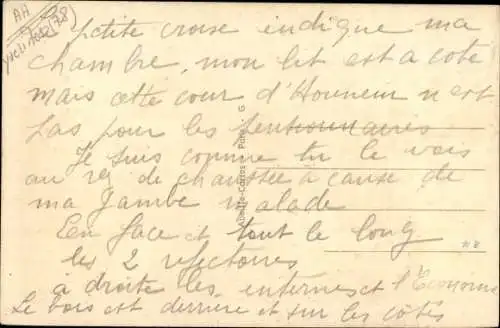 AA
Yvelines (78)
petite croise indique ma
chambre, mon lit est a coté
mais cette cour d'Honneur n'est
pas pour les pensionnaires
Je suis comme tu le vois
au rez de chaussée a cause de
ma Jambe malade
En face et tout le long
les 2 refectoires
à droite les internes et l'Econome
Le bois est derrière et sur les cotés